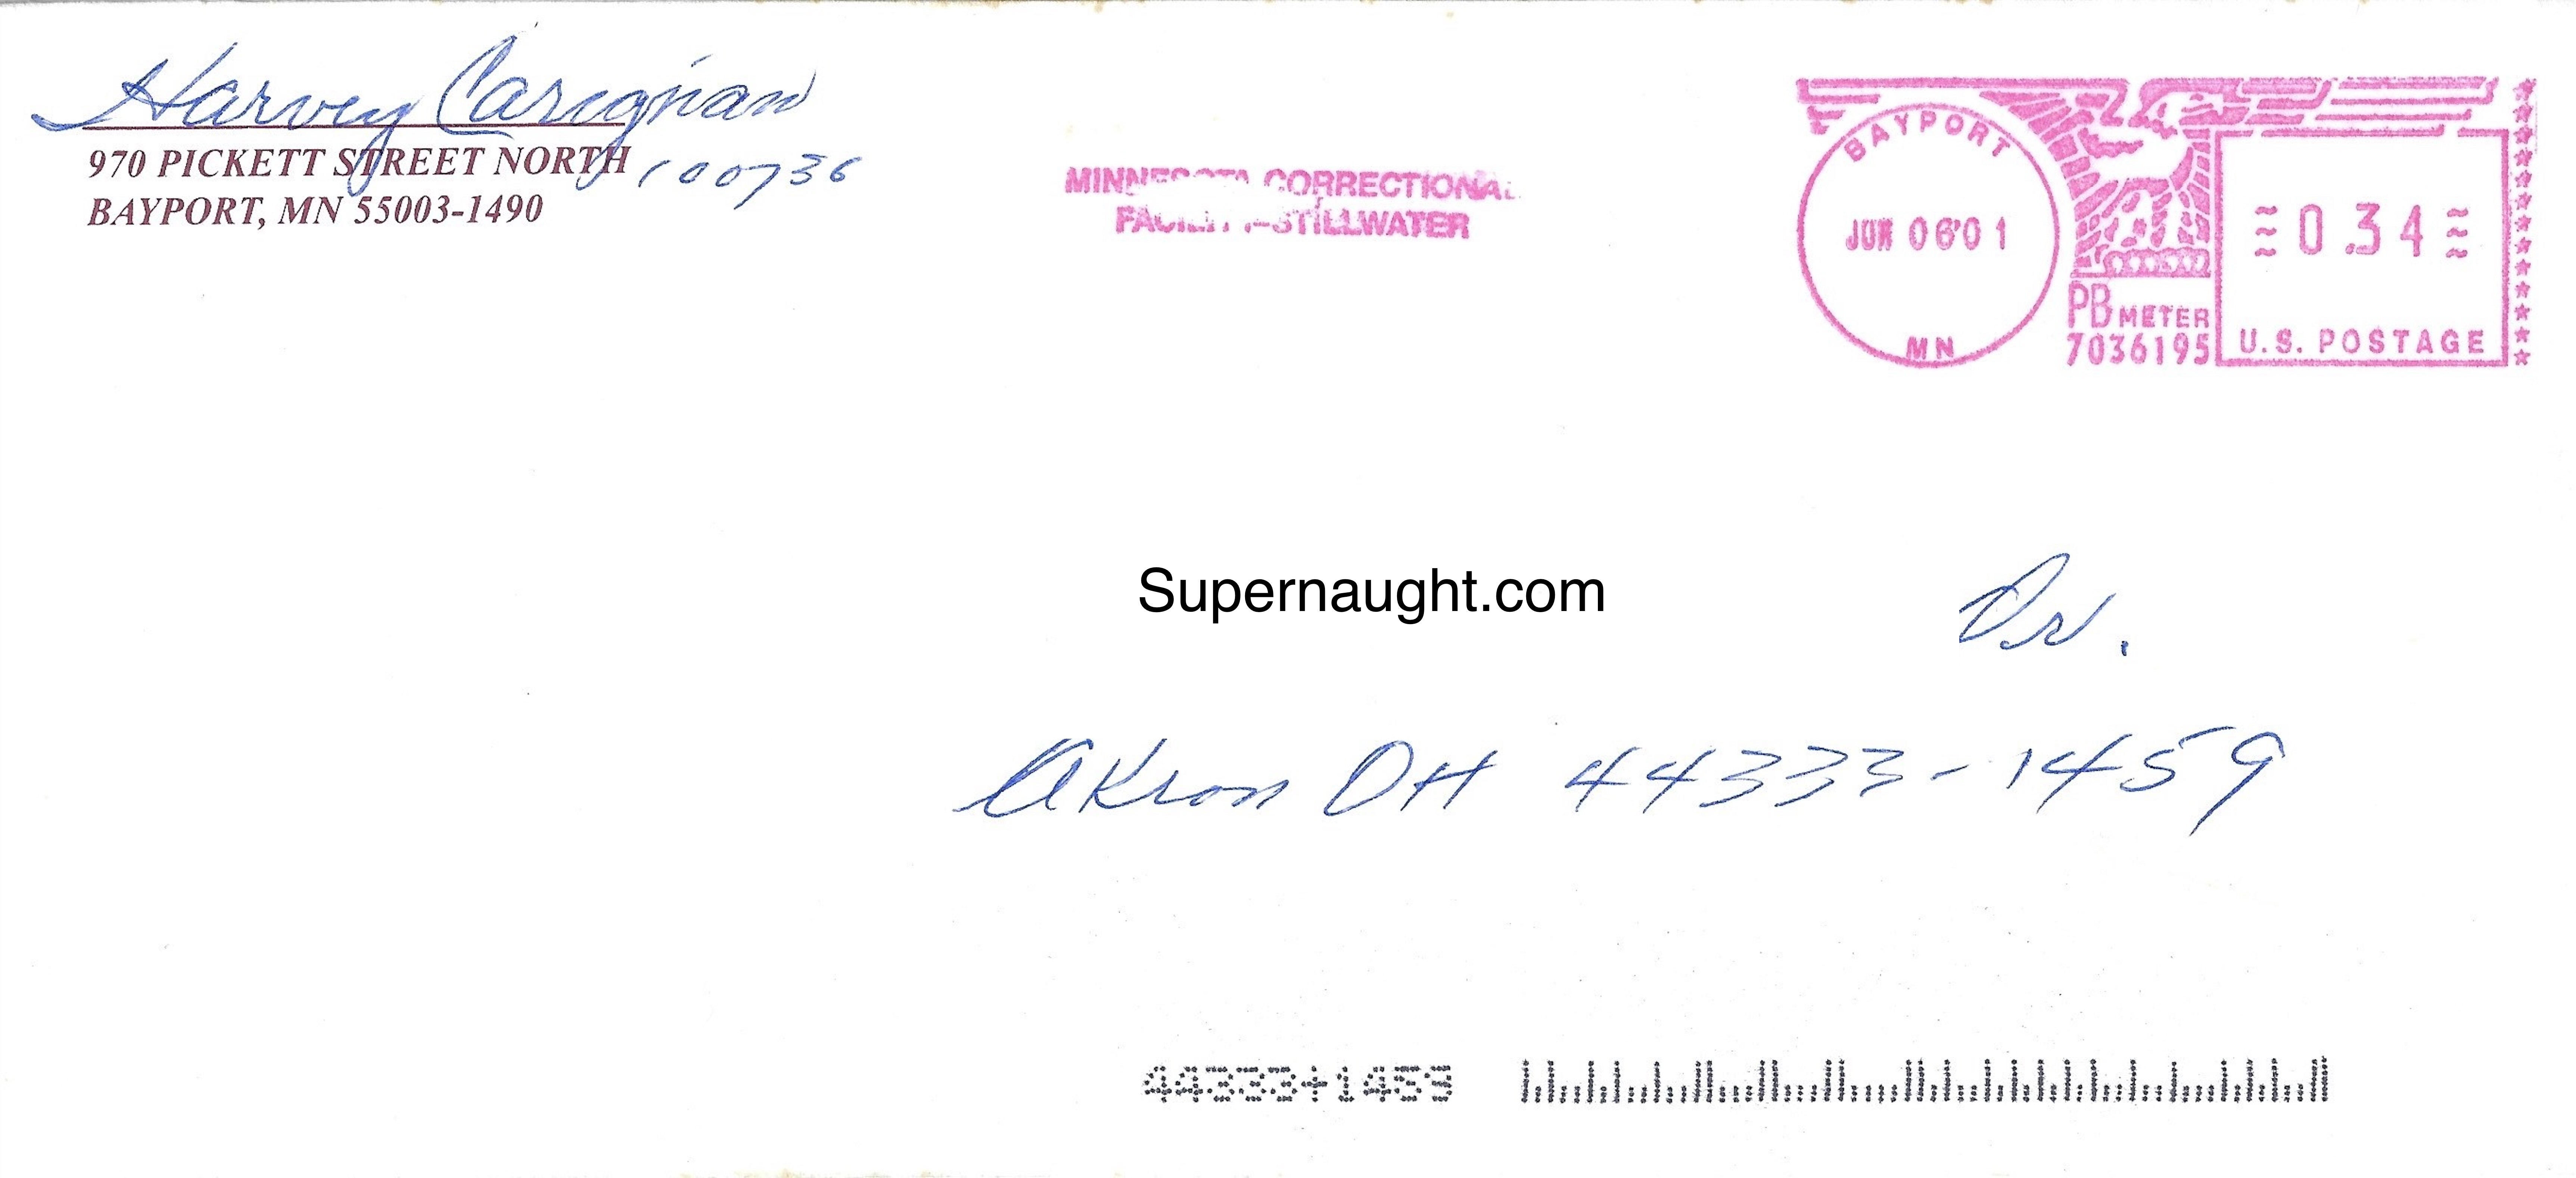 Harvey Carignan
970 PICKETT STREET NORTH 100736
BAYPORT, MN 55003-1490
MINNESOTA CORRECTIONAL
FACILITY-STILLWATER
BAYPORT
JUN 06'01
MN
PB METER
7036195
0.34
U.S. POSTAGE
Supernaught.com
Dr.
Akron OH 44333-1459
44333+1459